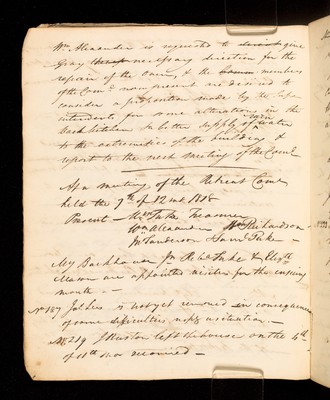 Wm Alexander is requested to direct give
Gray necessary direction for the
repairs of the Oven, & the members
of the Comee now present are desired to
consider a proposition made by the Super
intendents for some alterations in the
Back kitchen to better supply of water
to the extremities of the building &
report to the next meeting of the Comee
At a meeting of the Retreat Comee
held the 7th of 12 mo 1818
Present — Wm Tuke Treasurer
Wm Alexander Wm Richardson
Jn Sanderson Saml Tuke —
My Backhouse Jr Rebca Tuke & Elizth
Mason are appointed visitors for the ensuing
month —
No 187 Jos Lees is not yet removed in consequence
of some difficulties respg a situation —
No 219 J Ruston left the house on the 4th
of 11th mo recovered —